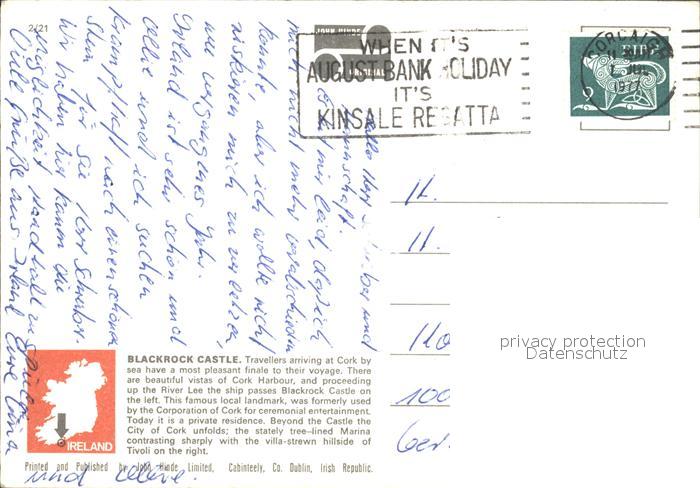 2/21
JOHN HINDE
ORIGINAL
WHEN IT'S
AUGUST BANK HOLIDAY
IT'S
KINSALE REGATTA
CORCAIGH
1977
EIRE
und
mir leid daß ich
mich nicht mehr verabschieden
konnte aber ich wollte nicht
riskieren mich zu verletzen,
wie vergangenes Jahr.
Irland ist sehr schön und
Cellie und ich suchen
krampfhaft nach einem schönen
Stein für Sie Herr Schreiber.
Wir haben hier kaum die
Möglichkeit Handball zu spielen
Viele Grüße aus Irland Eure
und
H.
H.
100
Ger.
privacy protection
Datenschutz
BLACKROCK CASTLE. Travellers arriving at Cork by
sea have a most pleasant finale to their voyage. There
are beautiful vistas of Cork Harbour, and proceeding
up the River Lee the ship passes Blackrock Castle on
the left. This famous local landmark, was formerly used
by the Corporation of Cork for ceremonial entertainment.
Today it is a private residence. Beyond the Castle the
City of Cork unfolds; the stately tree-lined Marina
contrasting sharply with the villa-strewn hillside of
Tivoli on the right.
IRELAND
Printed and Published by John Hinde Limited, Cabinteely, Co. Dublin, Irish Republic.